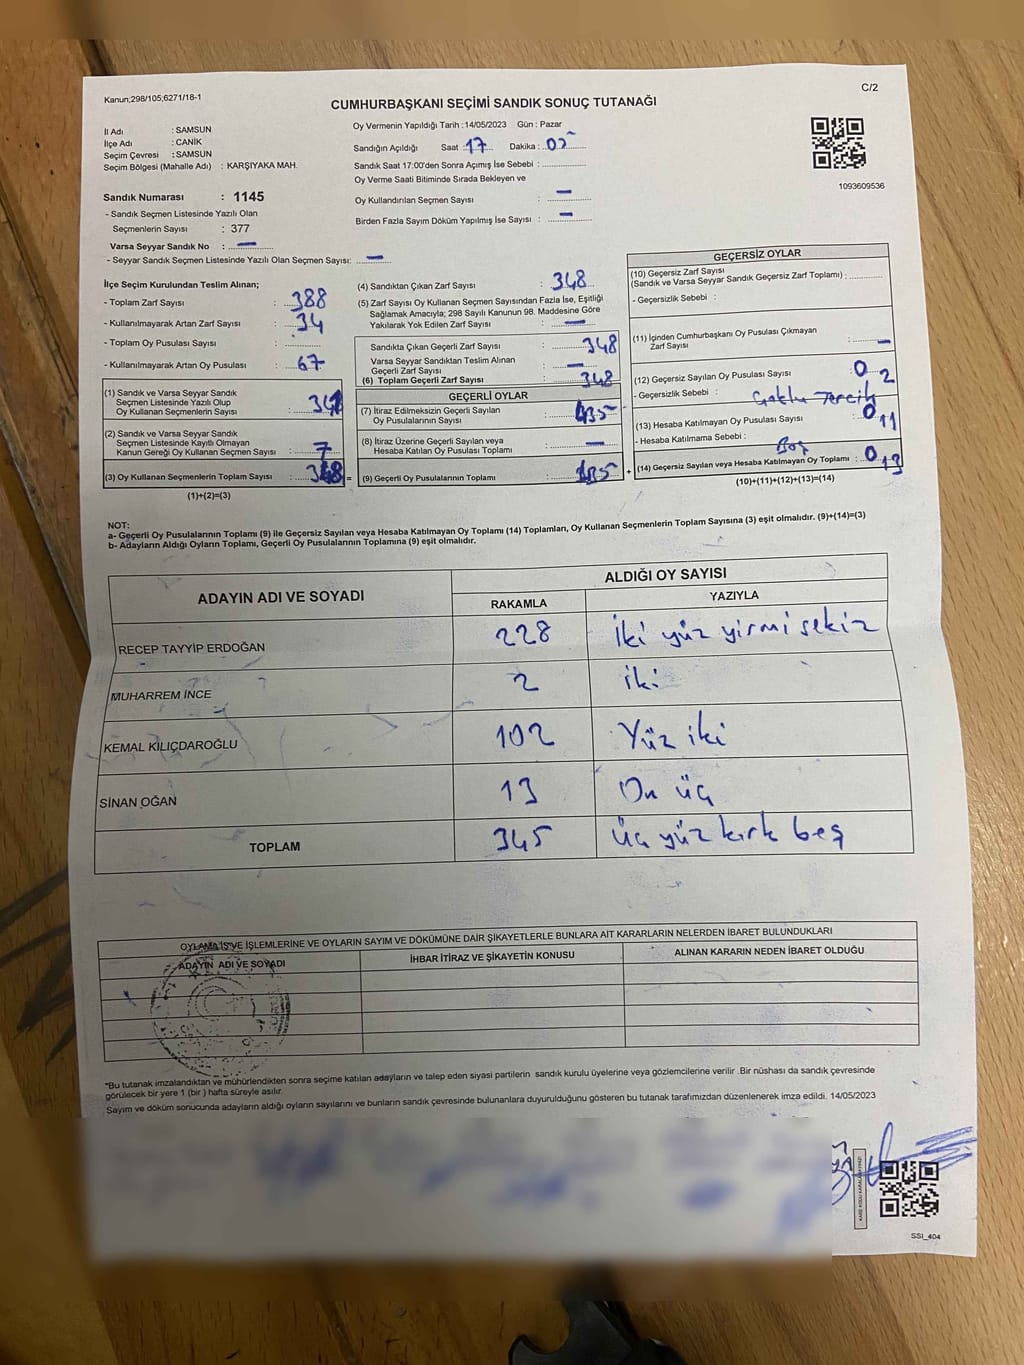 Kanun;298/105;6271/18-1
C/2
CUMHURBAŞKANI SEÇİMİ SANDIK SONUÇ TUTANAĞI
İl Adı : SAMSUN
İlçe Adı : CANİK
Seçim Çevresi : SAMSUN
Seçim Bölgesi (Mahalle Adı) : KARŞIYAKA MAH.
Sandık Numarası : 1145
- Sandık Seçmen Listesinde Yazılı Olan
Seçmenlerin Sayısı : 377
Varsa Seyyar Sandık No : —
- Seyyar Sandık Seçmen Listesinde Yazılı Olan Seçmen Sayısı: —
Oy Vermenin Yapıldığı Tarih :14/05/2023 Gün : Pazar
Sandığın Açıldığı Saat : 17 Dakika : 05
Sandık Saat 17:00'den Sonra Açımış İse Sebebi :
Oy Verme Saati Bitiminde Sırada Bekleyen ve
Oy Kullandırılan Seçmen Sayısı : —
Birden Fazla Sayım Döküm Yapılmış İse Sayısı : —
1093609536
İlçe Seçim Kurulundan Teslim Alınan;
- Toplam Zarf Sayısı : 388
- Kullanılmayarak Artan Zarf Sayısı : 34
- Toplam Oy Pusulası Sayısı :
- Kullanılmayarak Artan Oy Pusulası : 67
(1) Sandık ve Varsa Seyyar Sandık
Seçmen Listesinde Yazılı Olup
Oy Kullanan Seçmenlerin Sayısı :
(2) Sandık ve Varsa Seyyar Sandık
Seçmen Listesinde Kayıtlı Olmayan
Kanun Gereği Oy Kullanan Seçmen Sayısı : 7
(3) Oy Kullanan Seçmenlerin Toplam Sayısı : 348 =
(1)+(2)=(3)
(4) Sandıktan Çıkan Zarf Sayısı : 348
(5) Zarf Sayısı Oy Kullanan Seçmen Sayısından Fazla İse, Eşitliği
Sağlamak Amacıyla; 298 Sayılı Kanunun 98. Maddesine Göre
Yakılarak Yok Edilen Zarf Sayısı : —
Sandıkta Çıkan Geçerli Zarf Sayısı : 348
Varsa Seyyar Sandıktan Teslim Alınan
Geçerli Zarf Sayısı : —
(6) Toplam Geçerli Zarf Sayısı : 348
GEÇERLİ OYLAR
(7) İtiraz Edilmeksizin Geçerli Sayılan
Oy Pusulalarının Sayısı :
(8) İtiraz Üzerine Geçerli Sayılan veya
Hesaba Katılan Oy Pusulası Toplamı : —
(9) Geçerli Oy Pusulalarının Toplamı : +
GEÇERSİZ OYLAR
(10) Geçersiz Zarf Sayısı
(Sandık ve Varsa Seyyar Sandık Geçersiz Zarf Toplamı) :
- Geçersizlik Sebebi :
(11) İçinden Cumhurbaşkanı Oy Pusulası Çıkmayan
Zarf Sayısı : —
(12) Geçersiz Sayılan Oy Pusulası Sayısı : 0 2
- Geçersizlik Sebebi : Çoklu Tercih
(13) Hesaba Katılmayan Oy Pusulası Sayısı : 0 11
- Hesaba Katılmama Sebebi : Boş
(14) Geçersiz Sayılan veya Hesaba Katılmayan Oy Toplamı : 0 13
(10)+(11)+(12)+(13)=(14)
NOT:
a- Geçerli Oy Pusulalarının Toplamı (9) ile Geçersiz Sayılan veya Hesaba Katılmayan Oy Toplamı (14) Toplamları, Oy Kullanan Seçmenlerin Toplam Sayısına (3) eşit olmalıdır. (9)+(14)=(3)
b- Adayların Aldığı Oyların Toplamı, Geçerli Oy Pusulalarının Toplamına (9) eşit olmalıdır.
ADAYIN ADI VE SOYADI ALDIĞI OY SAYISI
RAKAMLA YAZIYLA
RECEP TAYYİP ERDOĞAN 228 İki yüz yirmi sekiz
MUHARREM İNCE 2 iki
KEMAL KILIÇDAROĞLU 102 Yüz iki
SİNAN OĞAN 13 On üç
TOPLAM 345 Üç yüz kırk beş
OYLAMA İŞ VE İŞLEMLERİNE VE OYLARIN SAYIM VE DÖKÜMÜNE DAİR ŞİKAYETLERLE BUNLARA AİT KARARLARIN NELERDEN İBARET BULUNDUKLARI
ADAYIN ADI VE SOYADI İHBAR İTİRAZ VE ŞİKAYETİN KONUSU ALINAN KARARIN NEDEN İBARET OLDUĞU
*Bu tutanak imzalandıktan ve mühürlendikten sonra seçime katılan adayların ve talep eden siyasi partilerin sandık kurulu üyelerine veya gözlemcilerine verilir .Bir nüshası da sandık çevresinde
görülecek bir yere 1 (bir ) hafta süreyle asılır.
Sayım ve döküm sonucunda adayların aldığı oyların sayılarını ve bunların sandık çevresinde bulunanlara duyurulduğunu gösteren bu tutanak tarafımızdan düzenlenerek imza edildi. 14/05/2023
SSI_404